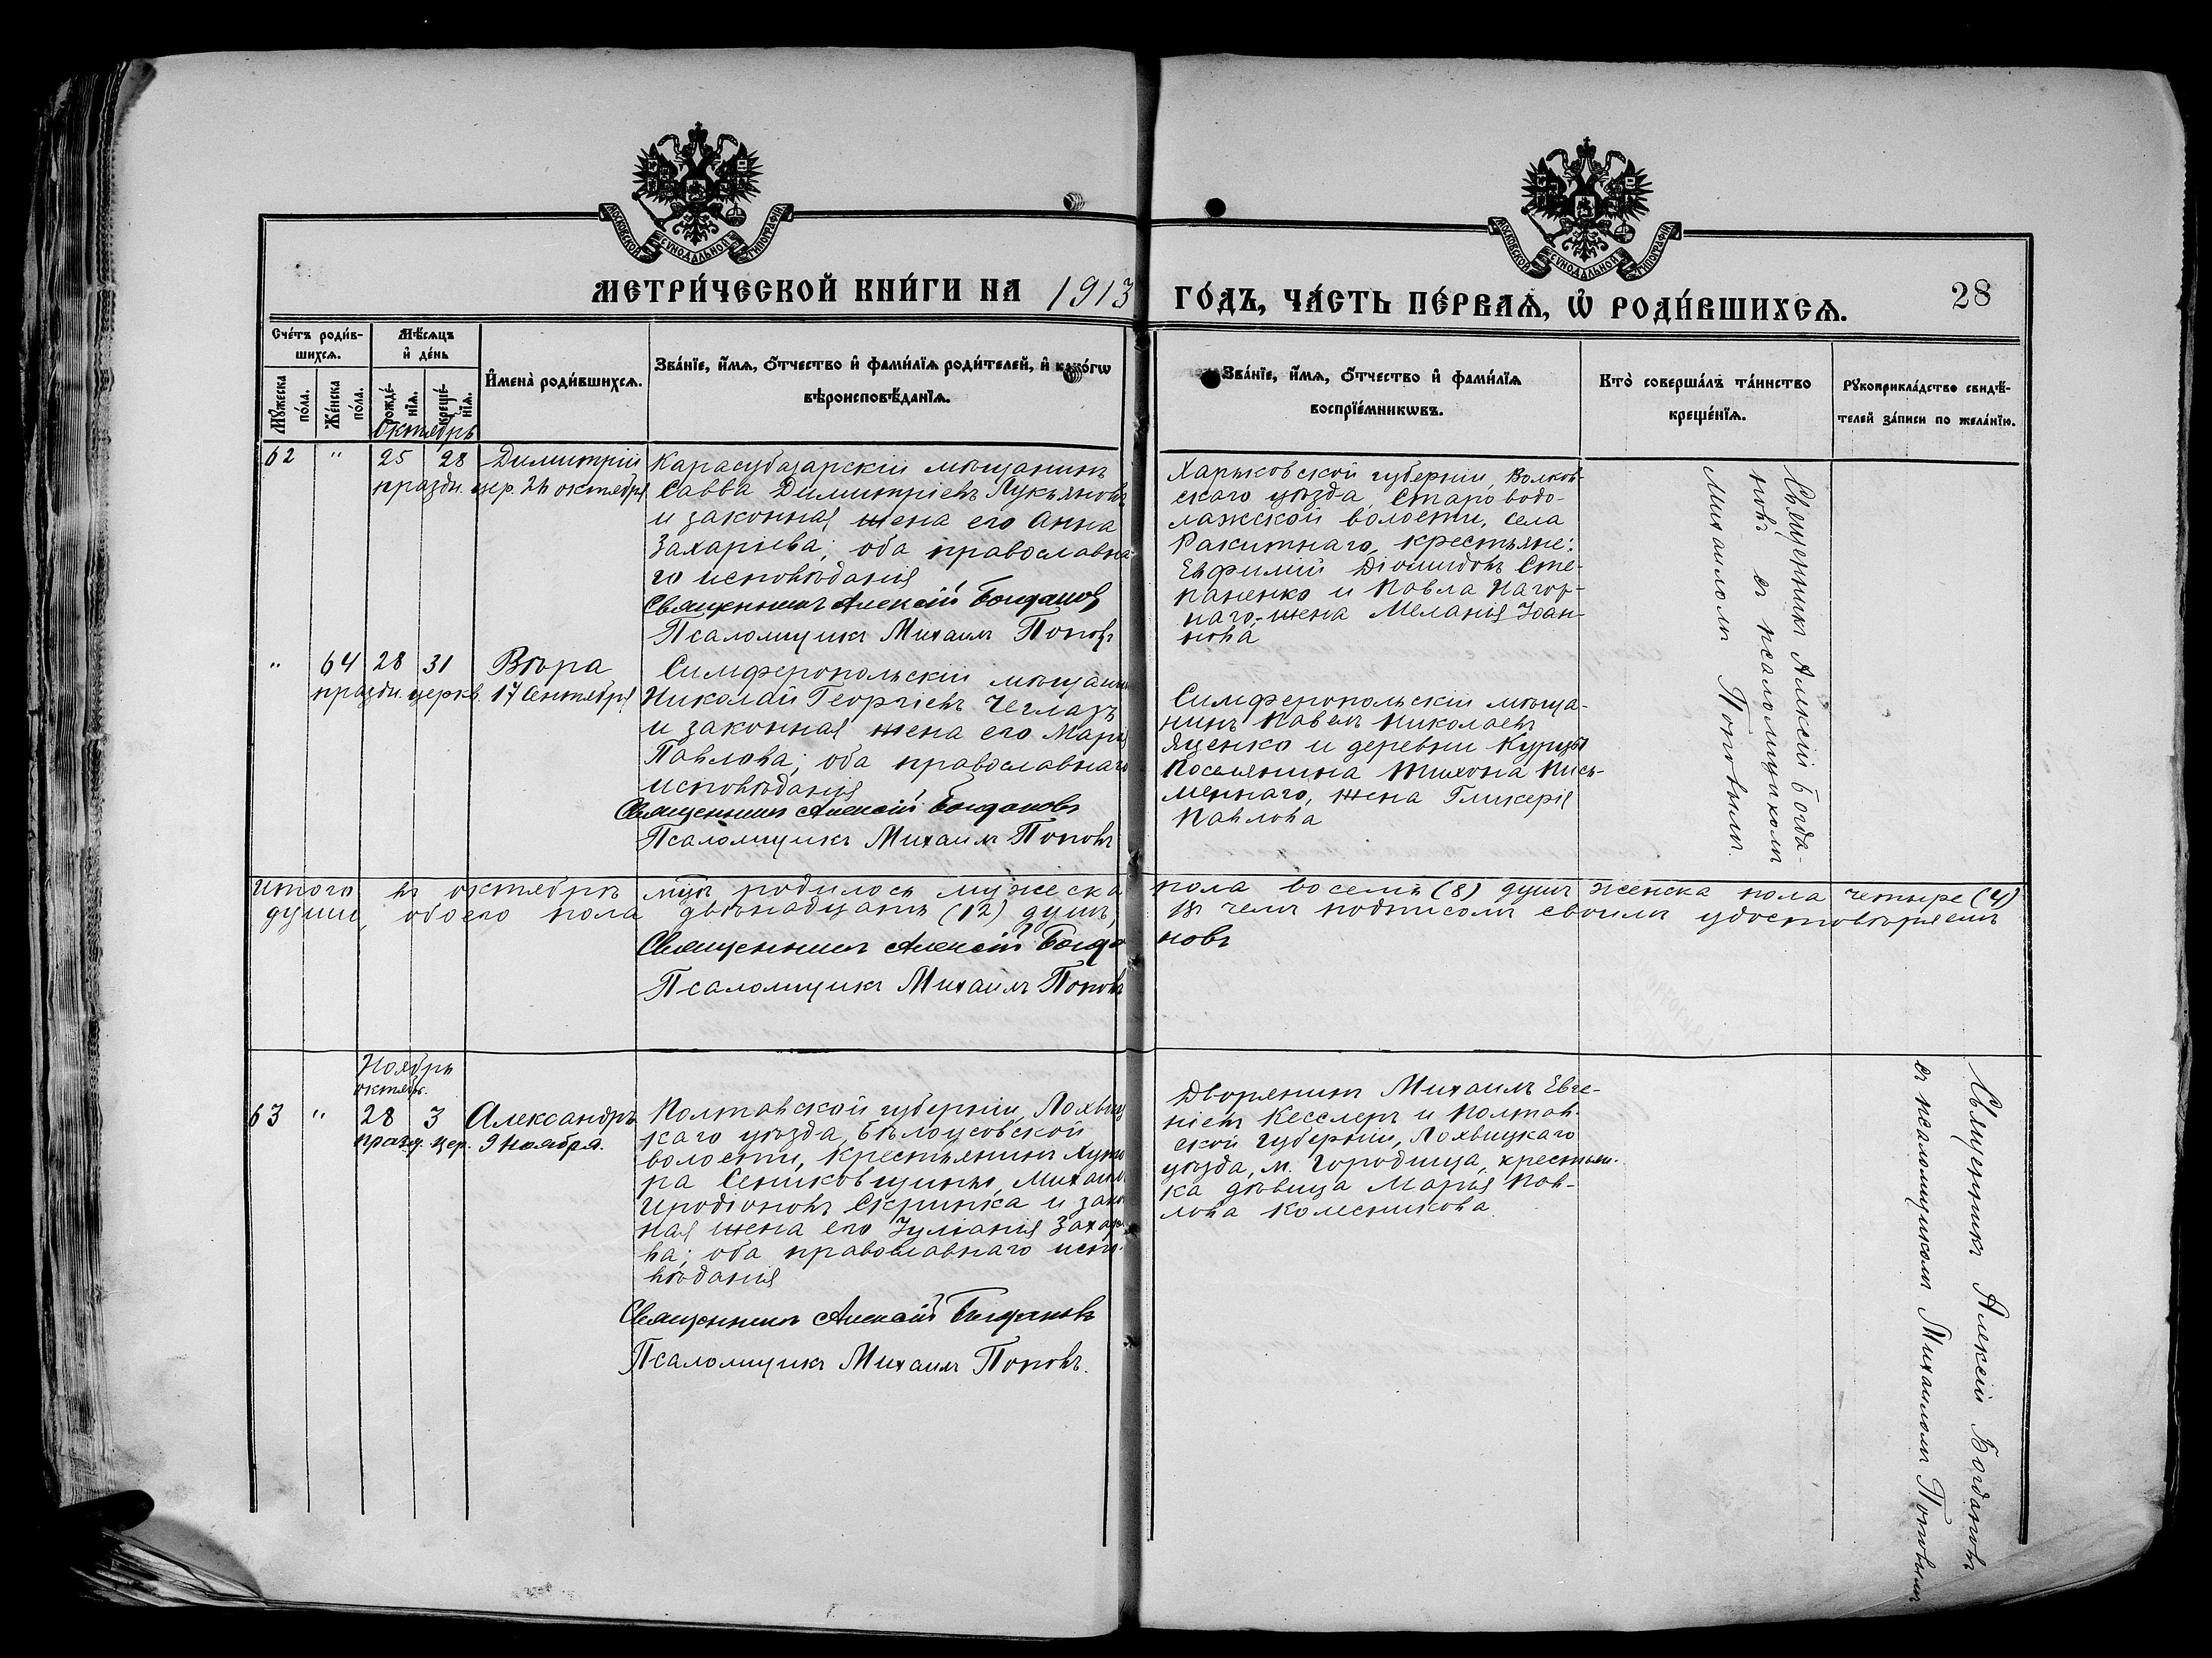 МОСКОВСКОЙ СѴНОДАЛЬНОЙ ТИПОГРАФІИ
МОСКОВСКОЙ СѴНОДАЛЬНОЙ ТИПОГРАФІИ
МЕТРИ́ЧЕСКОЙ КНИ́ГИ НА 1913
ГО́ДЪ, ЧА́СТЬ ПЕ́РВАѦ, Ѡ҆ РОДИ́ВШИХСѦ.
28
Сче́тъ роди́в-
шихсѧ.
Мꙋжеска по́ла.
Же́нска по́ла.
Мѣ́сѧцъ
и҆ де́нь
Рожде́-
нїѧ.
Креще́-
нїѧ.
И҆мена̀ роди́вшихсѧ.
Зва́нїе, и҆́мѧ, ѻ҆́тчество и҆ фами́лїѧ роди́телей, и҆ како́гѡ
вѣроисповѣ́данїѧ.
Зва́нїе, и҆́мѧ, ѻ҆́тчество и҆ фами́лїѧ
воспрїе́мникѡвъ.
Кто̀ соверша́лъ та́инство
креще́нїѧ.
Рꙋкоприкла́дство свидѣ́-
телей за́писи по жела́нїю.
Октябрь
62 " 25 28 Димитрій
праздн. цер. 26 октября
Карасубазарскій мѣщанинъ
Савва Димитріевъ Лукьяновъ
и законная жена его Анна
Захаріева; оба православна-
го исповѣданія
Священникъ Алексій Богданов
Псаломщикъ Михаилъ Поповъ
Харьковской губерніи, Волков-
скаго уѣзда, Старо водо-
лажской волости, села
Ракитнаго, крестьяне:
Евфимій Діомидовъ Сте-
паненко и Павла Нагор-
наго-жена Меланія Іоан-
нова
Священникъ Алексій Богда-
новъ съ псаломщикомъ
Михаиломъ Поповымъ.
" 64 28 31 Вѣра
праздн. церкв. 17 Сентября
Симферопольскій мѣщанинъ
Николай Георгіевъ Чеглазъ
и законная жена его Марія
Павлова; оба православнаго
исповѣданія
Священникъ Алексій Богдановъ
Псаломщикъ Михаилъ Поповъ
Симферопольскій мѣща-
нинъ Павелъ Николаевъ
Яценко и деревни Курцы
поселянина Тихона Пись-
меннаго, жена Гликерія
Павлова
Итого въ октябрѣ мцѣ родилось мужеска пола восемь (8) душъ женска пола четыре (4)
души, обоего пола двѣнадцать (12) душъ, въ чемъ подписомъ своимъ удостовѣряемъ
Священникъ Алексій Богда новъ
Псаломщикъ Михаилъ Поповъ
Ноябрь
октябр.
63 " 28 3 Александръ
празд. цер. 9 ноября.
Полтавской губерніи, Лохвиц
каго уѣзда, Бѣлоусовской
волости, крестьянинъ хуто
ра Сениковщины, Михаилъ
Иродіоновъ Скрипка и закон
ная жена его Іуліанія Захарі
ва; оба православнаго испо-
вѣданія
Священникъ Алексій Богдановъ
Псаломщикъ Михаилъ Поповъ.
Дворянинъ Михаилъ Евге-
ніевъ Кесслеръ и Полтав-
ской губерніи, Лохвицкаго
уѣзда, м. Городища, крестьян-
ка дѣвица Марья Пав-
лова Колесникова
Священникъ Алексій Богдановъ
съ псаломщикомъ Михаиломъ Поповымъ